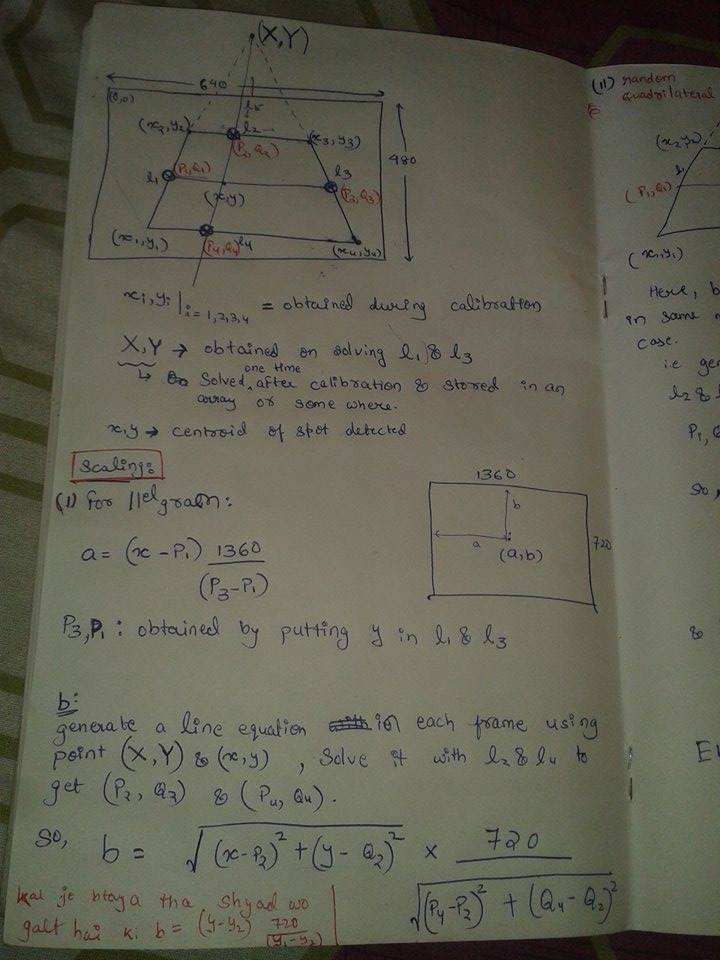 (X,Y)
640
(0,0)
l2
(x2,y2)
(x3,y3)
(P2,Q2)
480
l1
(P1,Q1)
l3
(x,y)
(P3,Q3)
(x1,y1)
(P4,Q4)
l4
(x4,y4)
xi,yi|i=1,2,3,4 = obtained during calibration
X,Y → obtained on solving l1 & l3
↳ Solved one time after calibration & stored in an
array or some where.
x,y → centroid of spot detected
Scaling:
(1) for ||elgram:
a = (x - P1) 1360
(P3-P1)
1360
b
a
(a,b)
720
P3,P1 : obtained by putting y in l1 & l3
b:
generate a line equation in each frame using
point (X,Y) & (x,y) , Solve it with l2 & l4 to
get (P2, Q2) & (P4, Q4).
So, b = √(x-P2)² + (y-Q2)² × 720
√(P4-P2)² + (Q4-Q2)²
kal je btaya tha shyad wo
galt hai ki b = (y-y2) 720
(y1-y2)
(11) random
quadrilateral
(x2,y2)
l1
(P1,Q1)
(x1,y1)
Here, b
in same
case.
i.e ge
l2 &
P1,
So,
&